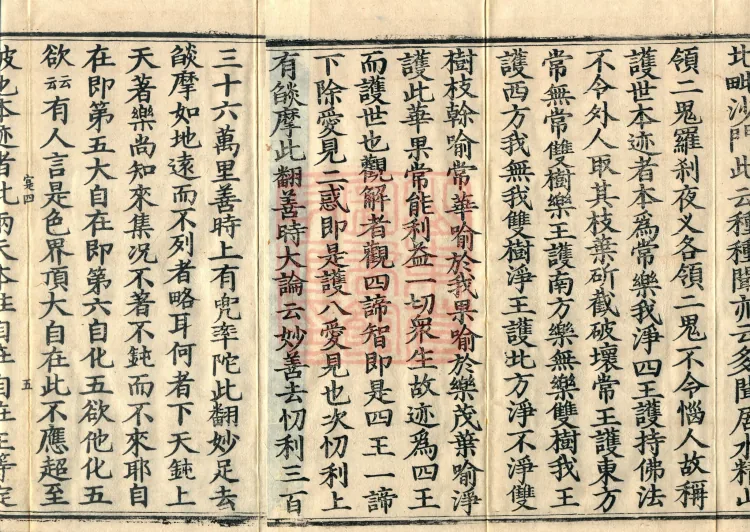 北毗沙門此云種種聞亦云多聞居水精山
領二鬼羅刹夜义各領二鬼不令惱人故稱
護世本迹者本爲常樂我淨四王護持佛法
不令外人取其枝葉斫截破壞常王護東方
常無常雙樹樂王護南方樂無樂雙樹我王
護西方我無我雙樹淨王護北方淨不淨雙
樹枝榦喻常華喻於我果喻於樂茂葉喻淨
護此華果常能利益一切衆生故迹爲四王
而護世也觀解者觀四諦智即是四王一諦
下除愛見二惑即是護八愛見也次忉利上
有燄摩此翻善時大論云妙善去忉利三百
三十六萬里善時上有兜率陀此翻妙足去
燄摩如地遠而不列者略耳何者下天鈍上
天著樂尚知來集况不著不鈍而不來耶自
在即第五大自在即第六自化五欲他化五
欲云云有人言是色界頂大自在此不應超至
寔四 五
彼也本迹者此兩天本住自在自在王等定